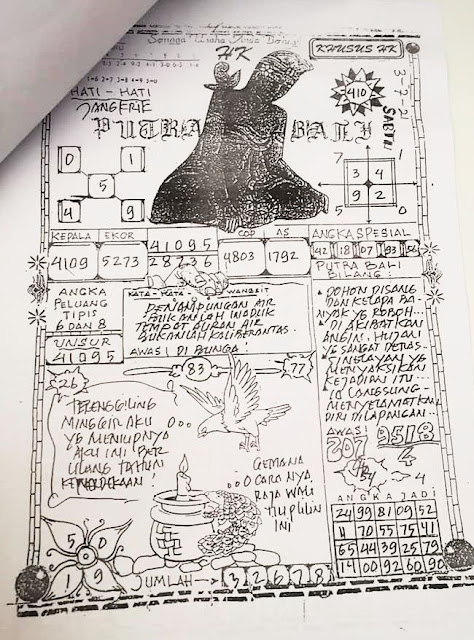 HK
KHUSUS HK
1-6 2-7 3-8 4-9 5-0
HATI - HATI
TANGERIE
PUTRA BALI
3-7-21
SABTU
410
0 1
5
4 9
7 1
3 4
9 2
5 0
KEPALA EKOR
4109 5273
41095
28736
COP AS
4803 1792
ANGKA SPESIAL
42 18 07 93 56
PUTRA BALI
BILANG:
ANGKA
PELUANG
TIPIS
6 DAN 8
UNSUR
41095
KATA-KATA WANGSIT
PENAMPUNGAN AIR
BUKANLAH WADUK
TEMPAT ALIRAN AIR
BUKANLAH KALI BERANTAS.
AWASI DI BUNGA:
83
77
26
POHON PISANG
DAN KELAPA BA-
NYAK YG ROBOH...
DI AKIBATKAN
ANGIN, HUJAN
YG SANGAT DERAS..
NELAYAN YG
MENYAKSIKAN
KEJADIAN ITU...
IA LANGSUNG
MENYELAMATKAN
DIRI DI LAPANGAN...
TRENGGILING
MINGGIR AKU
YG MENIUPNYA
AKU INI BER
ULANG TAHUN
KEMERDEKAAN!
GEMANA
CARANYA
RAJA WALI
TIUP LILIN
INI
AWASI
207 9518
4
4
ANGKA JADI
24 99 81 09 52
11 70 55 75 41
65 44 39 25 79
14 00 92 60 90
5 0
1 9
JUMLAH → 3 2 6 7 8